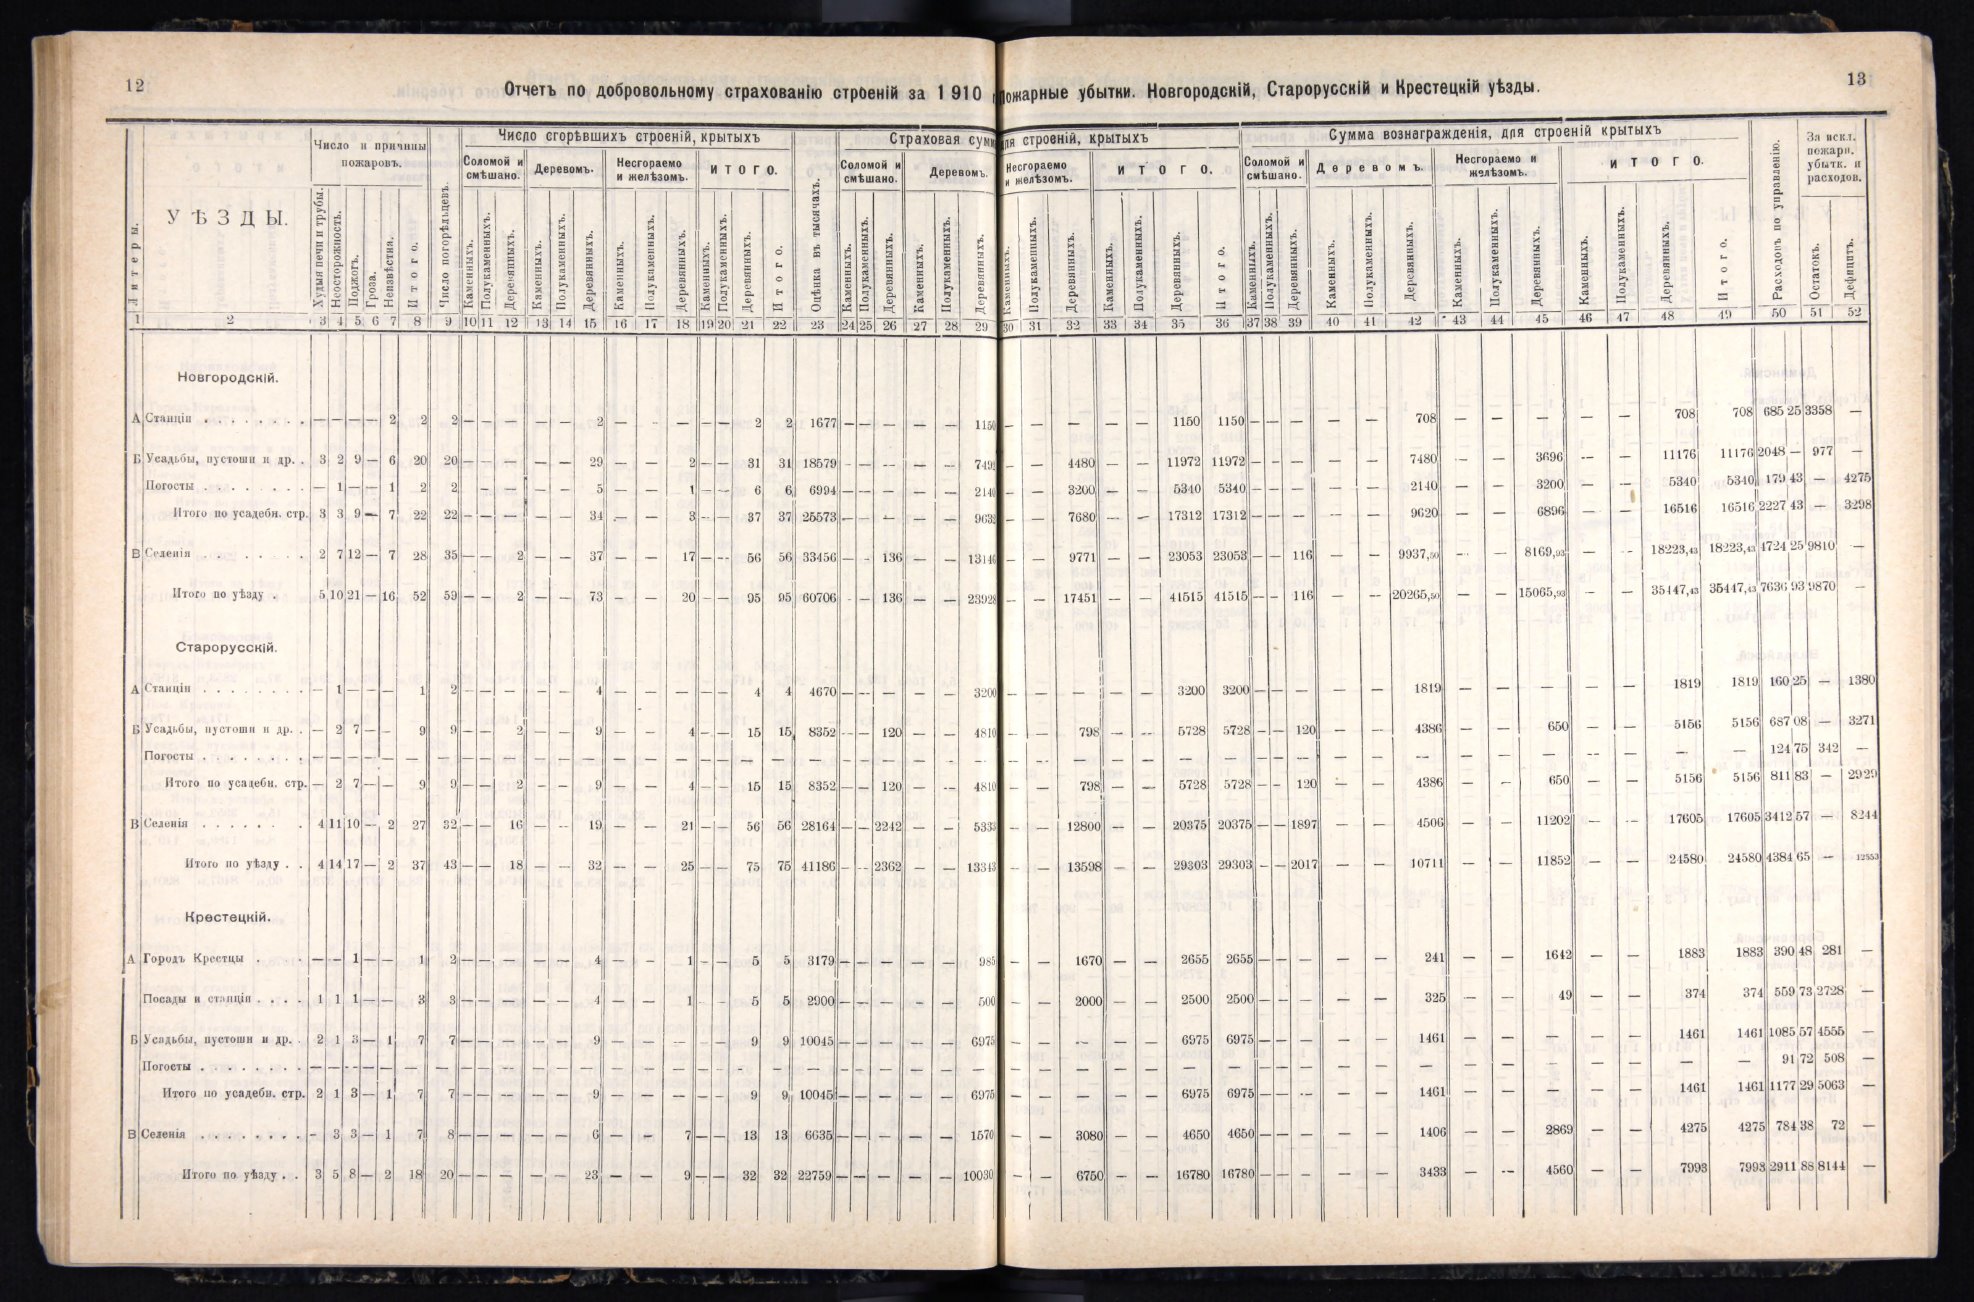 12
Отчетъ по добровольному страхованію строеній за 1910 г.
Пожарные убытки. Новгородскій, Старорусскій и Крестецкій уѣзды.
13
Литеры.
УѢЗДЫ.
Число и причины пожаровъ.
Худыя печи и трубы. Неосторожность. Поджогъ. Гроза. Неизвѣстна. Итого.
Число погорѣльцевъ.
Число сгорѣвшихъ строеній, крытыхъ
Соломой и смѣшано. Деревомъ. Несгораемо и желѣзомъ. ИТОГО.
Каменныхъ. Полукаменныхъ. Деревянныхъ. Каменныхъ. Полукаменныхъ. Деревянныхъ. Каменныхъ. Полукаменныхъ. Деревянныхъ. Каменныхъ. Полукаменныхъ. Деревянныхъ. Итого.
Оцѣнка въ тысячахъ.
Страховая сумма для строеній, крытыхъ
Соломой и смѣшано. Деревомъ. Несгораемо и желѣзомъ. ИТОГО.
Каменныхъ. Полукаменныхъ. Деревянныхъ. Каменныхъ. Полукаменныхъ. Деревянныхъ. Каменныхъ. Полукаменныхъ. Деревянныхъ. Каменныхъ. Полукаменныхъ. Деревянныхъ. Итого.
Сумма вознагражденія, для строеній крытыхъ
Соломой и смѣшано. Деревомъ. Несгораемо и желѣзомъ. ИТОГО.
Каменныхъ. Полукаменныхъ. Деревянныхъ. Каменныхъ. Полукаменныхъ. Деревянныхъ. Каменныхъ. Полукаменныхъ. Деревянныхъ. Каменныхъ. Полукаменныхъ. Деревянныхъ. Итого.
Расходовъ по управленію.
За искл. пожарн. убытк. и расходов.
Остатокъ. Дефицитъ.
1 2 3 4 5 6 7 8 9 10 11 12 13 14 15 16 17 18 19 20 21 22 23 24 25 26 27 28 29 30 31 32 33 34 35 36 37 38 39 40 41 42 43 44 45 46 47 48 49 50 51 52
Новгородскій.
А Станціи . . . . . . . . — — — — 2 2 2 — — — — — 2 — — — — — 2 2 1677 — — — — — 1150 — — — — — 1150 1150 — — — — — 708 — — — — — 708 708 685 25 3358 —
Б Усадьбы, пустоши и др. . 3 2 9 — 6 20 20 — — — — — 29 — — 2 — — 31 31 18579 — — — — — 7492 — — 4480 — — 11972 11972 — — — — — 7480 — — 3696 — — 11176 11176 2048 — 977 —
Погосты . . . . . . . . — 1 — — 1 2 2 — — — — — 5 — — 1 — — 6 6 6994 — — — — — 2140 — — 3200 — — 5340 5340 — — — — — 2140 — — 3200 — — 5340 5340 179 43 — 4275
Итого по усадебн. стр. 3 3 9 — 7 22 22 — — — — — 34 — — 3 — — 37 37 25573 — — — — — 9632 — — 7680 — — 17312 17312 — — — — — 9620 — — 6896 — — 16516 16516 2227 43 — 3298
В Селенія . . . . . . . . 2 7 12 — 7 28 35 — — 2 — — 37 — — 17 — — 56 56 33456 — — 136 — — 13146 — — 9771 — — 23053 23053 — — 116 — — 9937,50 — — 8169,93 — — 18223,43 18223,43 4724 25 9810 —
Итого по уѣзду . 5 10 21 — 16 52 59 — — 2 — — 73 — — 20 — — 95 95 60706 — — 136 — — 23928 — — 17451 — — 41515 41515 — — 116 — — 20265,50 — — 15065,93 — — 35447,43 35447,43 7636 93 9870 —
Старорусскій.
А Станціи . . . . . . . . — 1 — — — 1 2 — — — — — 4 — — — — — 4 4 4670 — — — — — 3200 — — — — — 3200 3200 — — — — — 1819 — — — — — 1819 1819 160 25 — 1380
Б Усадьбы, пустоши и др. . — 2 7 — — 9 9 — — 2 — — 9 — — 4 — — 15 15 8352 — — 120 — — 4810 — — 798 — — 5728 5728 — — 120 — — 4386 — — 650 — — 5156 5156 687 08 — 3271
Погосты . . . . . . . . — — — — — — — — — — — — — — — — — — — — — — — — — — — — — — — — — — — — — — — — — — — — — — — 124 75 342 —
Итого по усадебн. стр. — 2 7 — — 9 9 — — 2 — — 9 — — 4 — — 15 15 8352 — — 120 — — 4810 — — 798 — — 5728 5728 — — 120 — — 4386 — — 650 — — 5156 5156 811 83 — 2929
В Селенія . . . . . . . 4 11 10 — 2 27 32 — — 16 — — 19 — — 21 — — 56 56 28164 — — 2242 — — 5333 — — 12800 — — 20375 20375 — — 1897 — — 4506 — — 11202 — — 17605 17605 3412 57 — 8244
Итого по уѣзду . . 4 14 17 — 2 37 43 — — 18 — — 32 — — 25 — — 75 75 41186 — — 2362 — — 13343 — — 13598 — — 29303 29303 — — 2017 — — 10711 — — 11852 — — 24580 24580 4384 65 — 12553
Крестецкій.
А Городъ Крестцы . . — — 1 — — 1 2 — — — — — 4 — — 1 — — 5 5 3179 — — — — — 985 — — 1670 — — 2655 2655 — — — — — 241 — — 1642 — — 1883 1883 390 48 281 —
Посады и станціи . . . . 1 1 1 — — 3 3 — — — — — 4 — — 1 — — 5 5 2900 — — — — — 500 — — 2000 — — 2500 2500 — — — — — 325 — — 49 — — 374 374 559 73 2728 —
Б Усадьбы, пустоши и др. . 2 1 3 — 1 7 7 — — — — — 9 — — — — — 9 9 10045 — — — — — 6975 — — — — — 6975 6975 — — — — — 1461 — — — — — 1461 1461 1085 57 4555 —
Погосты . . . . . . . . — — — — — — — — — — — — — — — — — — — — — — — — — — — — — — — — — — — — — — — — — — — — — — — 91 72 508 —
Итого по усадебн. стр. 2 1 3 — 1 7 7 — — — — — 9 — — — — — 9 9 10045 — — — — — 6975 — — — — — 6975 6975 — — — — — 1461 — — — — — 1461 1461 1177 29 5063 —
В Селенія . . . . . . . . — 3 3 — 1 7 8 — — — — — 6 — — 7 — — 13 13 6635 — — — — — 1570 — — 3080 — — 4650 4650 — — — — — 1406 — — 2869 — — 4275 4275 784 38 72 —
Итого по уѣзду . . 3 5 8 — 2 18 20 — — — — — 23 — — 9 — — 32 32 22759 — — — — — 10030 — — 6750 — — 16780 16780 — — — — — 3433 — — 4560 — — 7993 7993 2911 88 8144 —